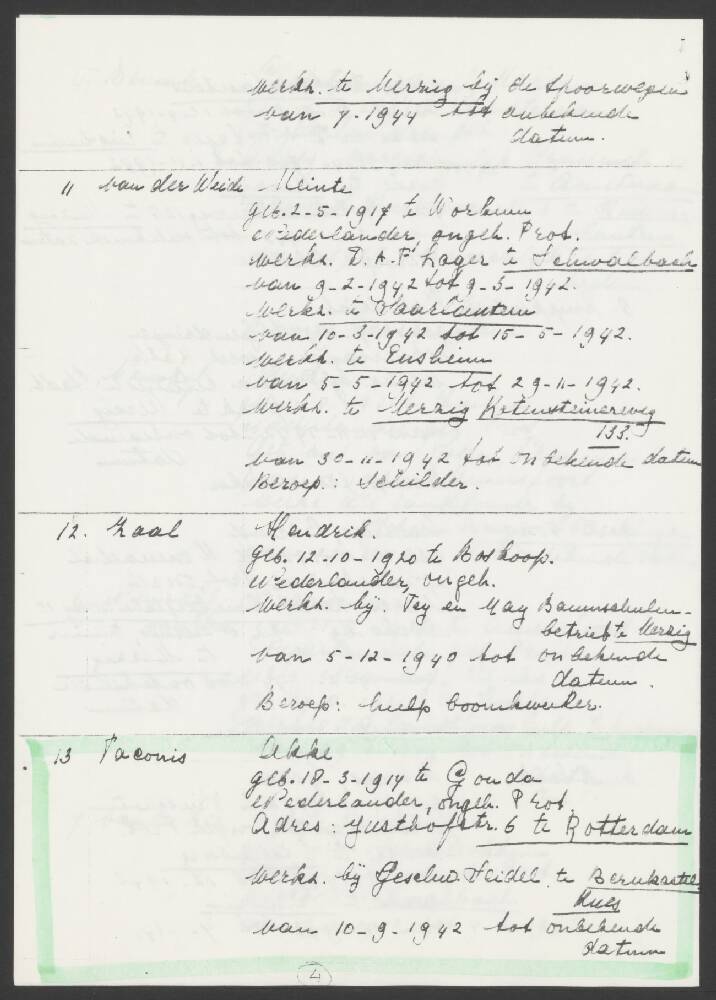 werkz. te Merzig bij de spoorwegen
van 7-1944 tot onbekende
datum.
11 van der Weide Meinte
geb. 2-5-1917 te Workum
Nederlander, ongeh. Prot.
werkz. D.A.F. Lager te Schwalbach
van 9-2-1942 tot 9-3-1942.
werkz. te Saarlautern
van 10-3-1942 tot 15-5-1942.
werkz. te Ensheim
van 5-5-1942 tot 29-11-1942.
werkz. te Merzig Ketensteinerweg
133.
van 30-11-1942 tot onbekende datum
Beroep: Schilder.
12. Zaal Hendrik.
geb. 12-10-1920 te Boskoop.
Nederlander, ongeh.
werkz. bij Fey en May Baumschulen-
betrieb te Merzig
van 5-12-1940 tot onbekende
datum.
Beroep: hulp boomkweker.
13 Taconis Akke
geb. 18-3-1914 te Gouda
Nederlander, ongeh. Prot.
Adres: Justhofstr. 6 te Rotterdam
werkz. bij Geschw. Seidel te Bernkastel
Kues
van 10-9-1942 tot onbekende
datum
4